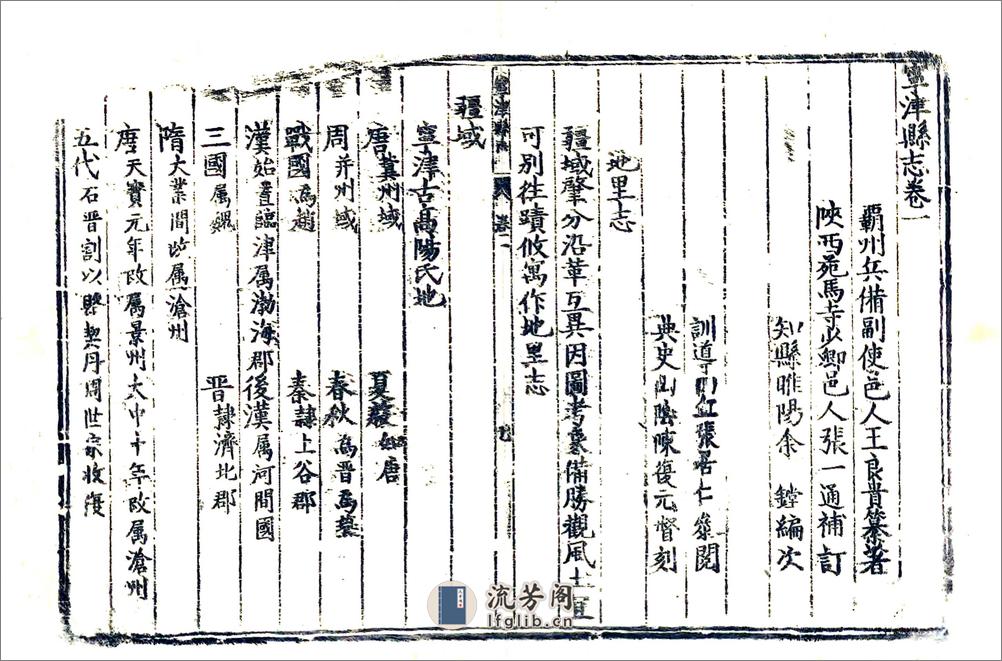 寧津縣志卷一
霸州兵備副使邑人王良貴纂著
陝西苑馬寺少卿邑人張一通補訂
知縣睢陽余 鏜編次
訓導 張居仁 閱
典史山陰陳復元督刻
地里志
疆域肇分沿革互異因圖考 備勝觀風土宜
可別往蹟攸寓作地里志
寧津縣志 卷一
疆域
寧津古高陽氏地
唐冀州域 夏 如唐
周并州域 春秋為晉為燕
戰國為趙 秦隸上谷郡
漢始置臨津属渤海郡後漢属河間國
三國属魏 晋隸濟北郡
隋大業間改属滄州
唐天寶元年改属景州大中十年改属滄州
五代石晋割以縣契丹周世宗收復
流芳阁
lfglib.cn